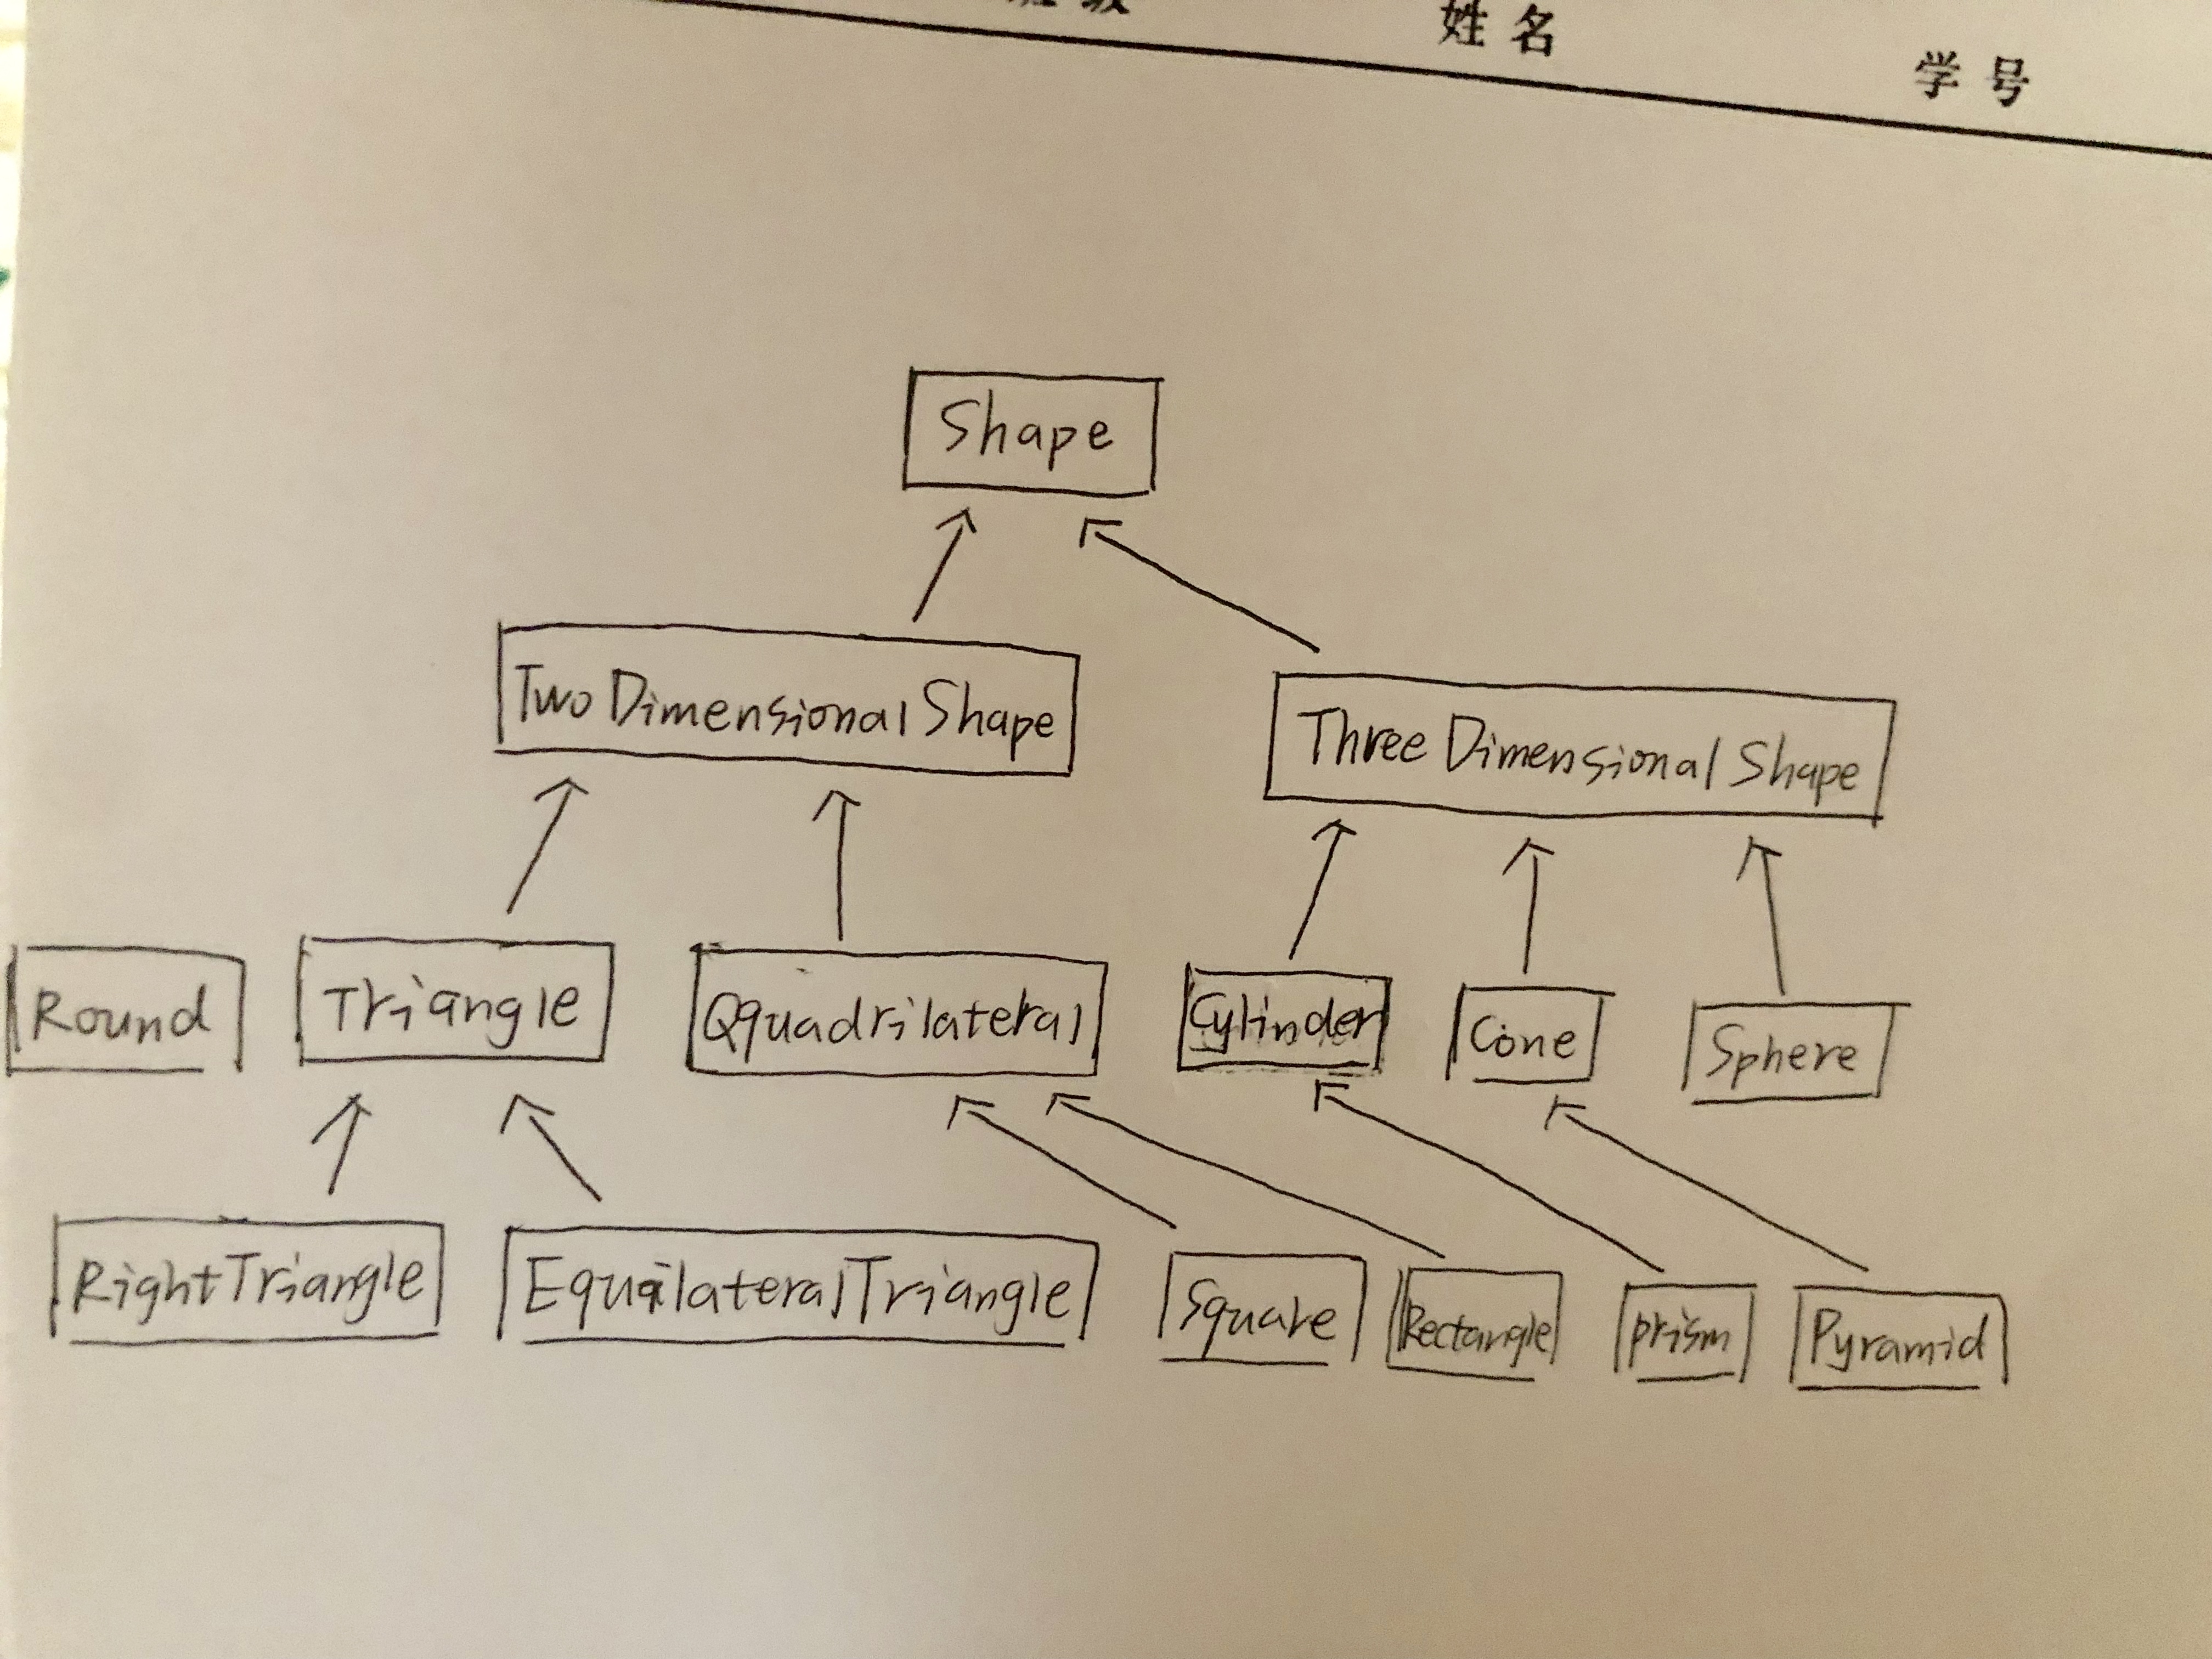 姓名
学号
Shape
Two Dimensional Shape
Three Dimensional Shape
Round
Triangle
Qquadrilateral
Cylinder
Cone
Sphere
RightTriangle
EquilateralTriangle
Square
Rectangle
prism
Pyramid